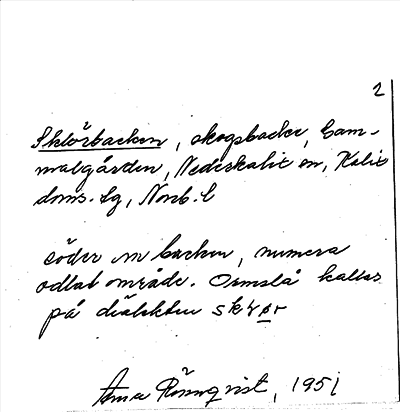 2
Sklörbacken, skogsbacke, Gam-
malgården, Nederkalix sn, Kalix
doms. lg, Norrb. l
söder om backen, numera
odlat område. Ormslå kallas
på dialekten sklør
Rönnqvist, 1951